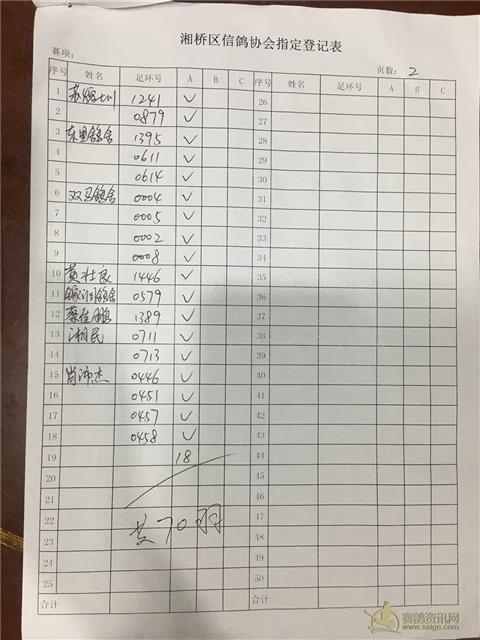 湘桥区信鸽协会指定登记表
赛项： 页数： 2
序号 姓名 足环号 A B C 序号 姓名 足环号 A B C
1 1241 ✓ 26
2 0879 ✓ 27
3 东里鸽舍 1395 ✓ 28
4 0611 ✓ 29
5 0614 ✓ 30
6 双马鸽舍 0004 ✓ 31
7 0005 ✓ 32
8 0002 ✓ 33
9 0008 ✓ 34
10 黄壮良 1446 ✓ 35
11 鸽舍 0579 ✓ 36
12 蔡佳鹏 1389 ✓ 37
13 民 0711 ✓ 38
14 0713 ✓ 39
15 肖沛杰 0446 ✓ 40
16 0451 ✓ 41
17 0457 ✓ 42
18 0458 ✓ 43
19 18 44
20 45
21 46
22 共70羽 47
23 48
24 49
25 50
合计 合计
赛鸽资讯网
www.saige.com